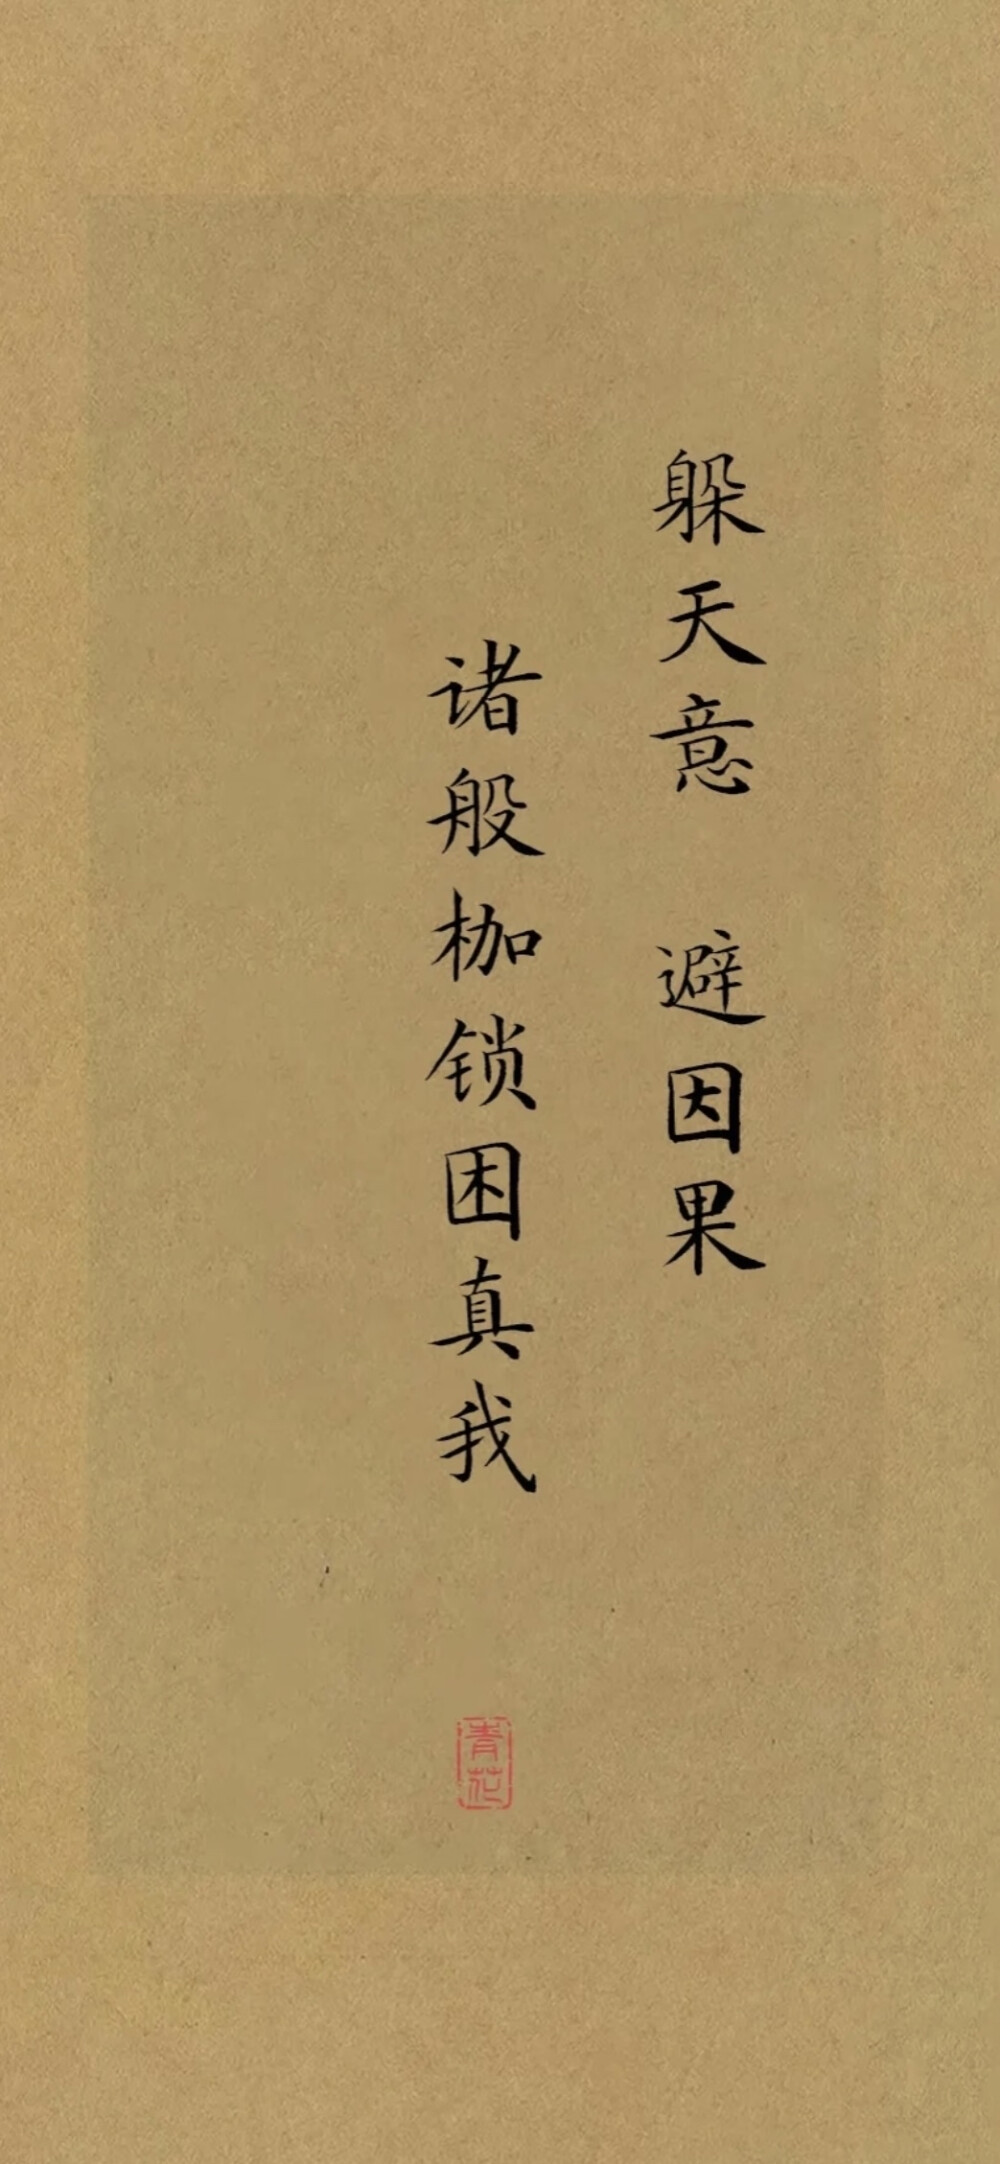 躲天意 避因果
诸般枷锁困真我
青花